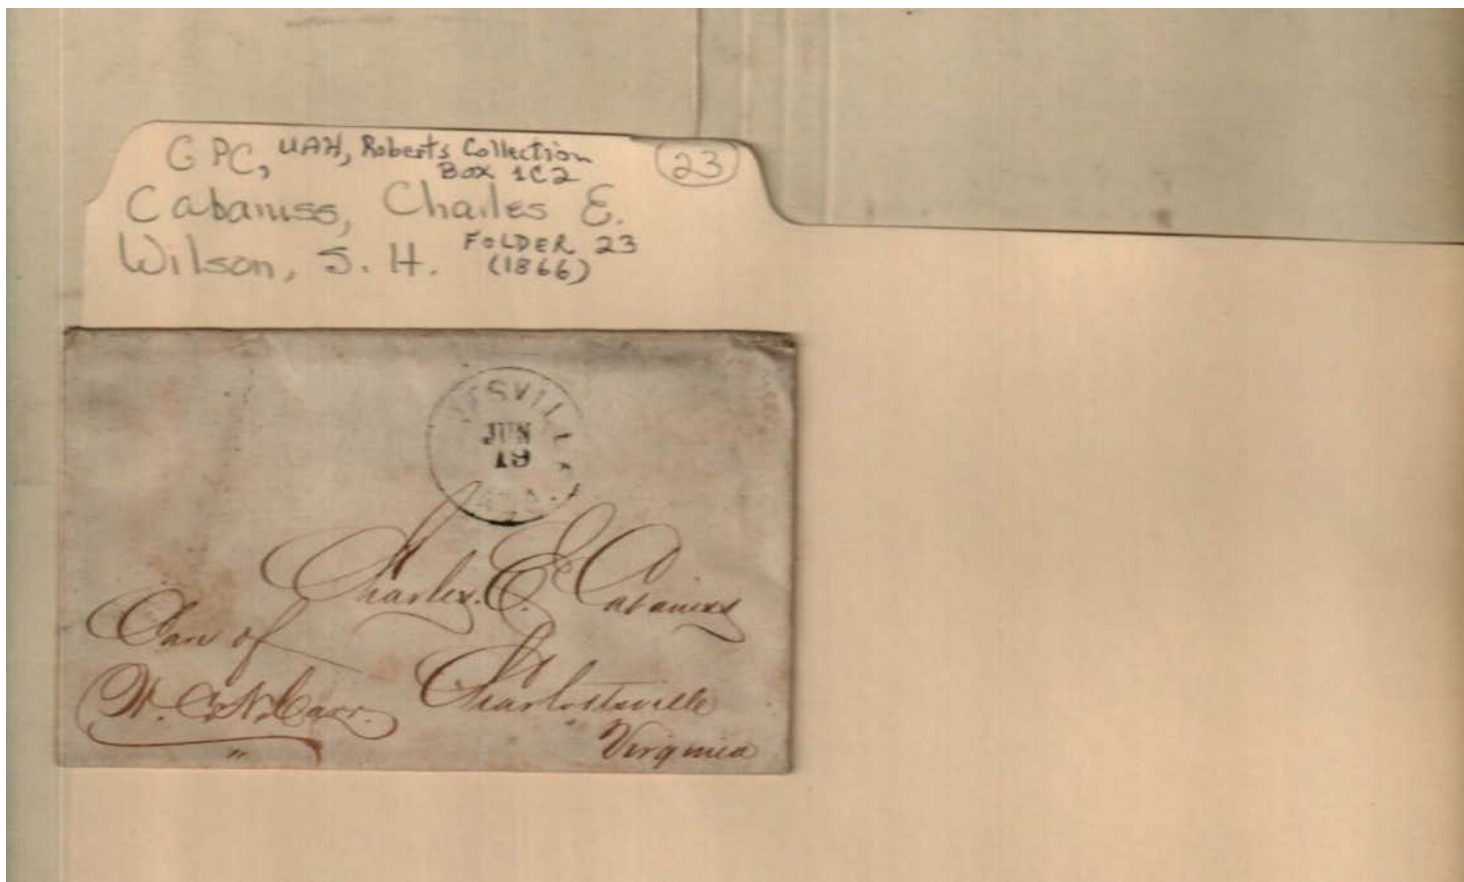 GPC, UAH, Roberts Collection
Box 1C2
23
Cabaniss, Charles E.
Wilson, S. H. FOLDER 23
(1866)
JUN
19
Charles. E. Cabaniss
Care of
W. C. N. Carr.
Charlottsville
Virginia